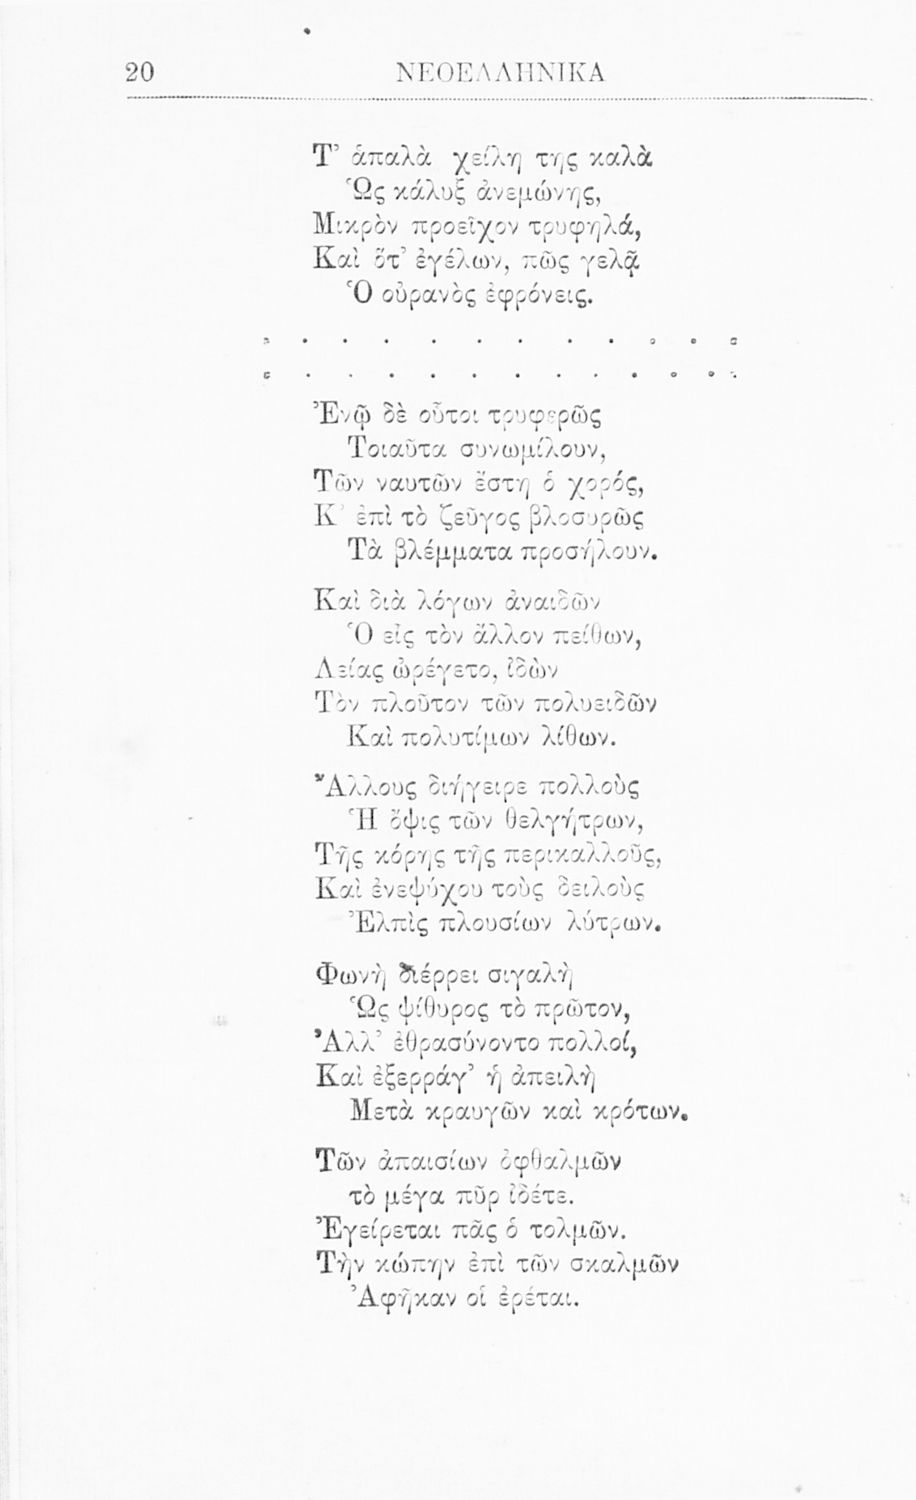 20 ΝΕΟΕΛΛΗΝΙΚΑ
Τ’ ἁπαλὰ χείλη της καλὰ
Ὡς κάλυξ ἀνεμώνης,
Μικρὸν προεῖχον τρυφηλά,
Καὶ ὅτ’ ἐγέλων, πῶς γελᾷ
Ὁ οὐρανὸς ἐφρόνεις.
. . . . . . . . . . . .
. . . . . . . . . . . .
Ἐνῷ δὲ οὗτοι τρυφερῶς
Τοιαῦτα συνωμίλουν,
Τῶν ναυτῶν ἔστη ὁ χορός,
Κ’ ἐπὶ τὸ ζεῦγος βλοσυρῶς
Τὰ βλέμματα προσήλουν.
Καὶ διὰ λόγων ἀναιδῶν
Ὁ εἷς τὸν ἄλλον πείθων,
Λείας ὠρέγετο, ἰδὼν
Τὸν πλοῦτον τῶν πολυειδῶν
Καὶ πολυτίμων λίθων.
Ἄλλους διήγειρε πολλοὺς
Ἡ ὄψις τῶν θελγήτρων,
Τῆς κόρης τῆς περικαλλοῦς,
Καὶ ἐνεψύχου τοὺς δειλοὺς
Ἐλπὶς πλουσίων λύτρων.
Φωνὴ διέρρει σιγαλὴ
Ὡς ψίθυρος τὸ πρῶτον,
Ἀλλ’ ἐθρασύνοντο πολλοί,
Καὶ ἐξερράγ’ ἡ ἀπειλὴ
Μετὰ κραυγῶν καὶ κρότων.
Τῶν ἀπαισίων ὀφθαλμῶν
τὸ μέγα πῦρ ἰδέτε.
Ἐγείρεται πᾶς ὁ τολμῶν.
Τὴν κώπην ἐπὶ τῶν σκαλμῶν
Ἀφῆκαν οἱ ἐρέται.